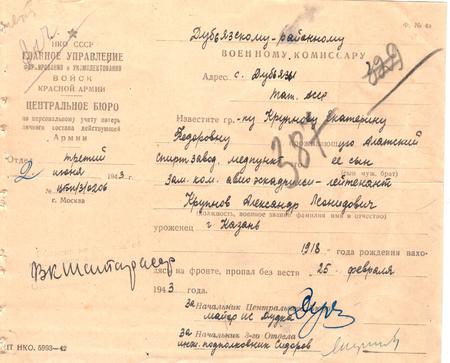 Ф. № 4а
НКО СССР
ГЛАВНОЕ УПРАВЛЕНИЕ
ФОРМИРОВАНИЯ и УКОМПЛЕКТОВАНИЯ
ВОЙСК
КРАСНОЙ АРМИИ
ЦЕНТРАЛЬНОЕ БЮРО
по персональному учету потерь
личного состава действующей
Армии
Отдел третий
2 июня 1943 г.
№
г. Москва
Дубьязскому районному
ВОЕННОМУ КОМИССАРУ
Адрес с. Дубьязы
Тат. сср
Известите гр-ку Крупнову Екатерину
Федоровну проживающую Алатский
спирт. завод, медпункт ее сын
(сын муж, брат)
Зам. ком. авиоэскадрильи - лейтенант
Крупнов Александр Леонидович
(должность, военное звание фамилия имя и отчество)
уроженец г Казань
1918 - года рождения нахо-
дясь на фронте, пропал без вести - 25 - февраля
1943 года.
За Начальник Центрального
майор ис Дудка
За Начальник 3-го Отдела
инж. подполковник Сидоров
ВК Шт
ТГ НКО. 5993—42